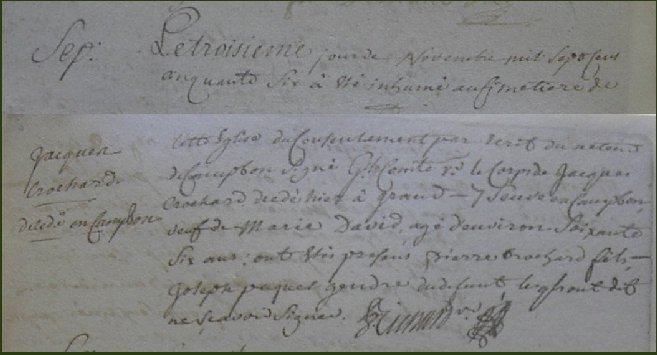 Sep:
Le troisieme jour de Novembre mil sept cent
cinquante six à été inhumé au Cimetiere de
Jacques
Crochard
décédé en Campbon
cette Eglise du Consentement par écrit du recteur
de Campbon signé G. le Comte le Corps de Jacques
Crochard decedé hier à Grand en Campbon
veuf de Marie David, agé d'environ Soixante
Six ans; ont étés presens pierre Crochard fils
Joseph paquet gendre du defunt, lesquels ont dit
ne Sçavoir Signer.